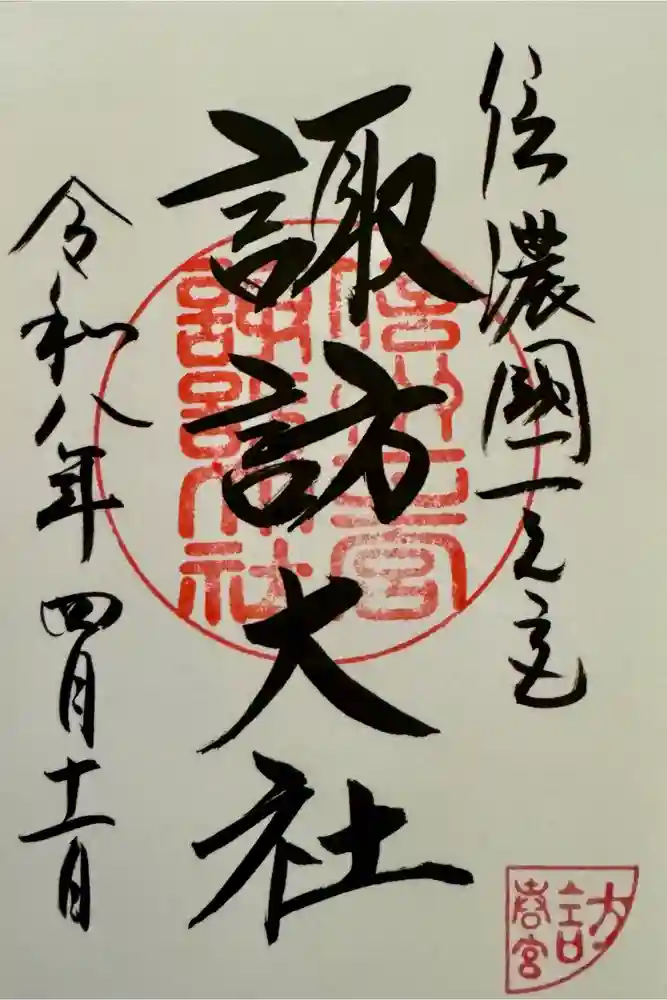 信濃國一之宮
諏訪大社
諏訪大社
令和八年四月十一日
訪
春宮